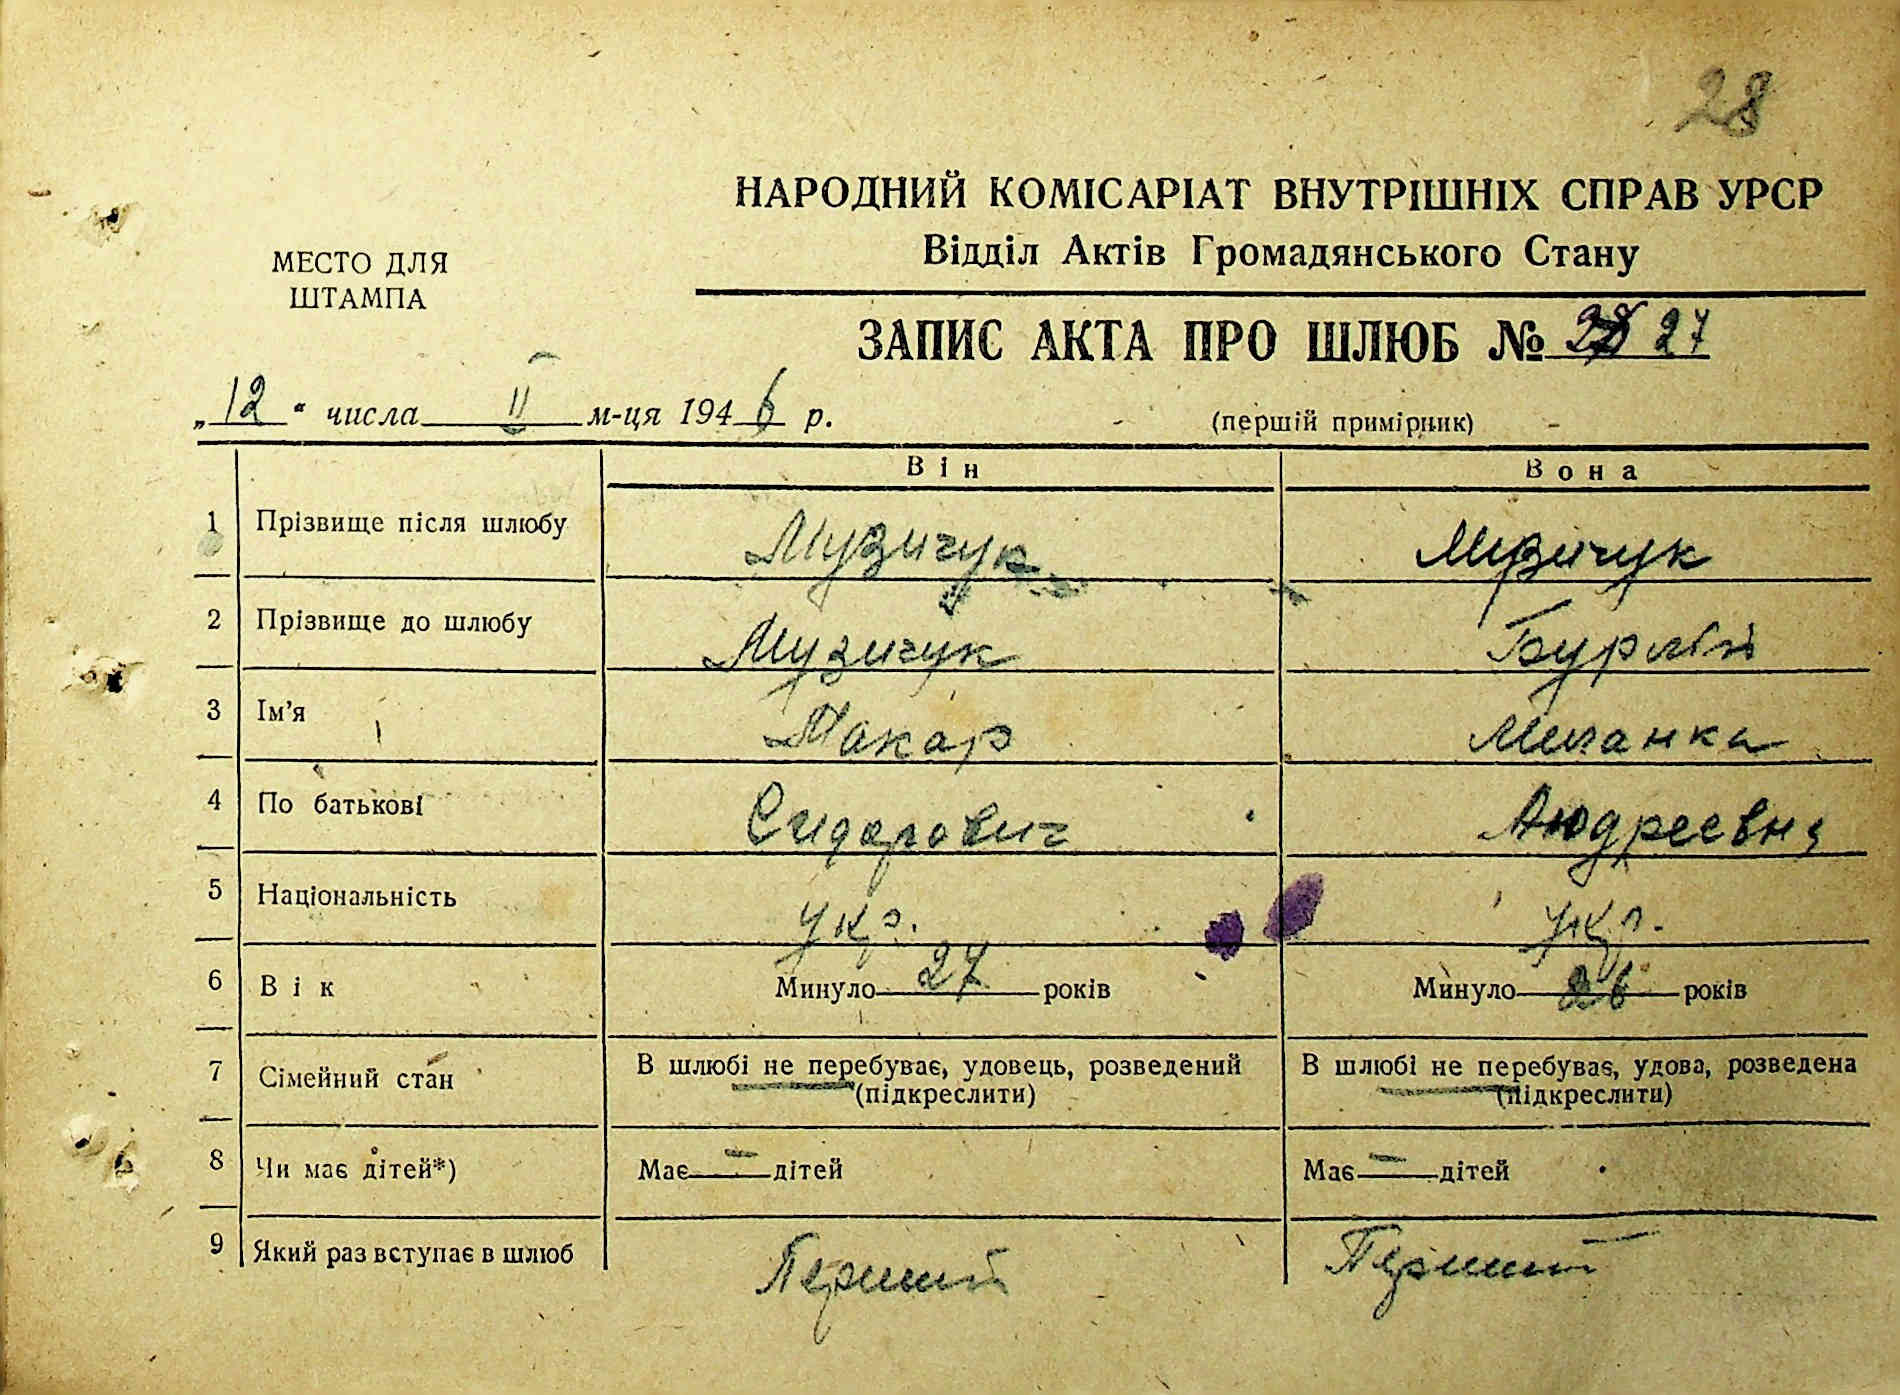 28
НАРОДНИЙ КОМІСАРІАТ ВНУТРІШНІХ СПРАВ УРСР
Відділ Актів Громадянського Стану
МЕСТО ДЛЯ
ШТАМПА
ЗАПИС АКТА ПРО ШЛЮБ № 27
„12“ числа II м-ця 1946 р.
(першій примірник)
Він Вона
1 Прізвище після шлюбу Музичук Музичук
2 Прізвище до шлюбу Музичук
3 Ім'я Макар Миланка
4 По батькові Сидорович Андреевна
5 Національність укр. укр.
6 Вік Минуло 27 років Минуло 26 років
7 Сімейний стан В шлюбі не перебуває, удовець, розведений В шлюбі не перебуває, удова, розведена
(підкреслити) (підкреслити)
8 Чи має дітей*) Має — дітей Має — дітей
9 Який раз вступає в шлюб Перший Перший